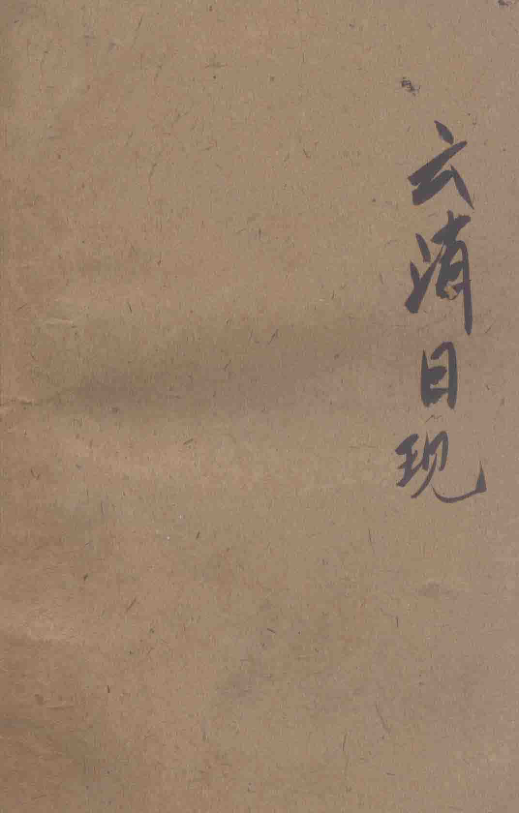 云消日现